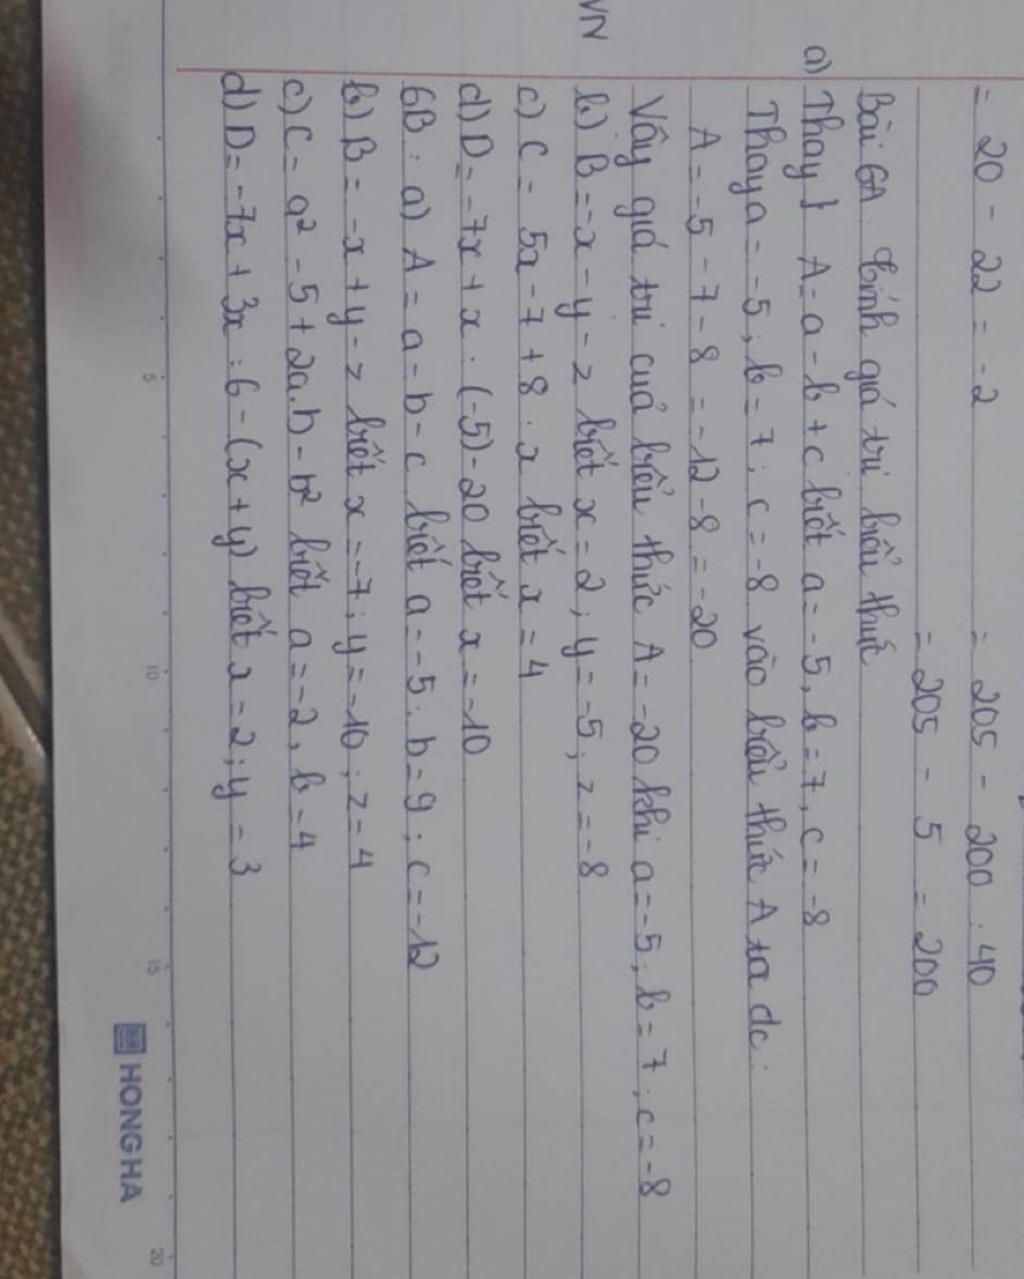 = 20 - 22 = -2 = 205 - 200 : 40
= 205 - 5 = 200
Bài 6A. Tính giá trị biểu thức
a) Thay} A = a - b + c biết a = -5, b = 7, c = -8
Thay a = -5; b = 7; c = -8 vào biểu thức A ta dc:
A = -5 - 7 - 8 = -12 - 8 = -20
Vậy giá trị cuả biểu thức A = -20 khi a = -5; b = 7; c = -8
VN
b) B = -x - y - z biết x = 2; y = -5; z = -8
c) C = 5x - 7 + 8 . x biết x = 4
d) D = -7x + x . (-5) - 20 biết x = -10
6B: a) A = a - b - c biết a = -5; b = 9; c = -12
b) B = -x + y - z biết x = -7; y = -10; z = 4
c) C = a² - 5 + 2a.b - b² biết a = -2, b = 4
d) D = -7x + 3x : 6 - (x + y) biết x = 2; y = 3
5 10 15 20
HONG HA